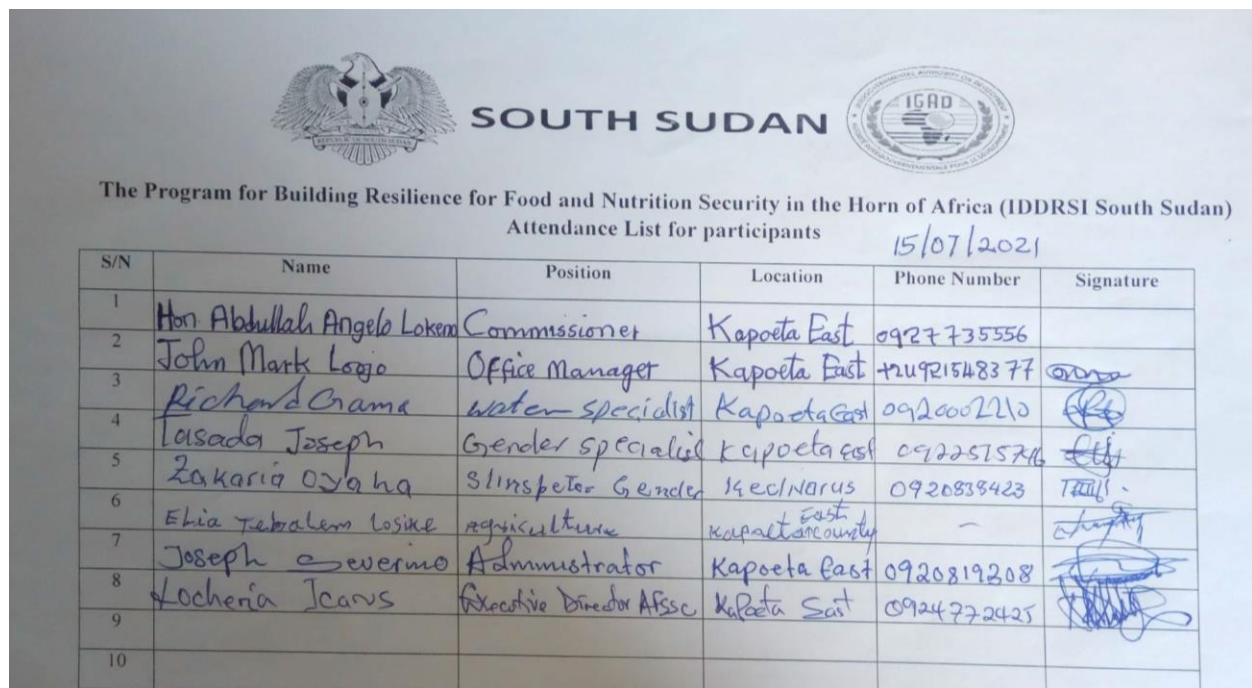 REPUBLIC OF SOUTH SUDAN
SOUTH SUDAN
IGAD
The Program for Building Resilience for Food and Nutrition Security in the Horn of Africa (IDDRSI South Sudan)
Attendance List for participants
15/07/2021
S/N Name Position Location Phone Number Signature
1 Hon. Abdullah Angelo Lokeno Commissioner Kapoeta East 0927735556
2 John Mark Logo Office Manager Kapoeta East +211921548377
3 Richard Gama water specialist Kapoeta East 0920002210
4 Lasada Joseph Gender specialist Kapoeta East
5 Zakaria Oyaha Gender 0920838423
6 Elia Losike Agriculture East county –
7 Joseph Severino Administrator Kapoeta East 0920819208
8 Locheria Icarus Executive Director Kapoeta East 0924772425
9
10